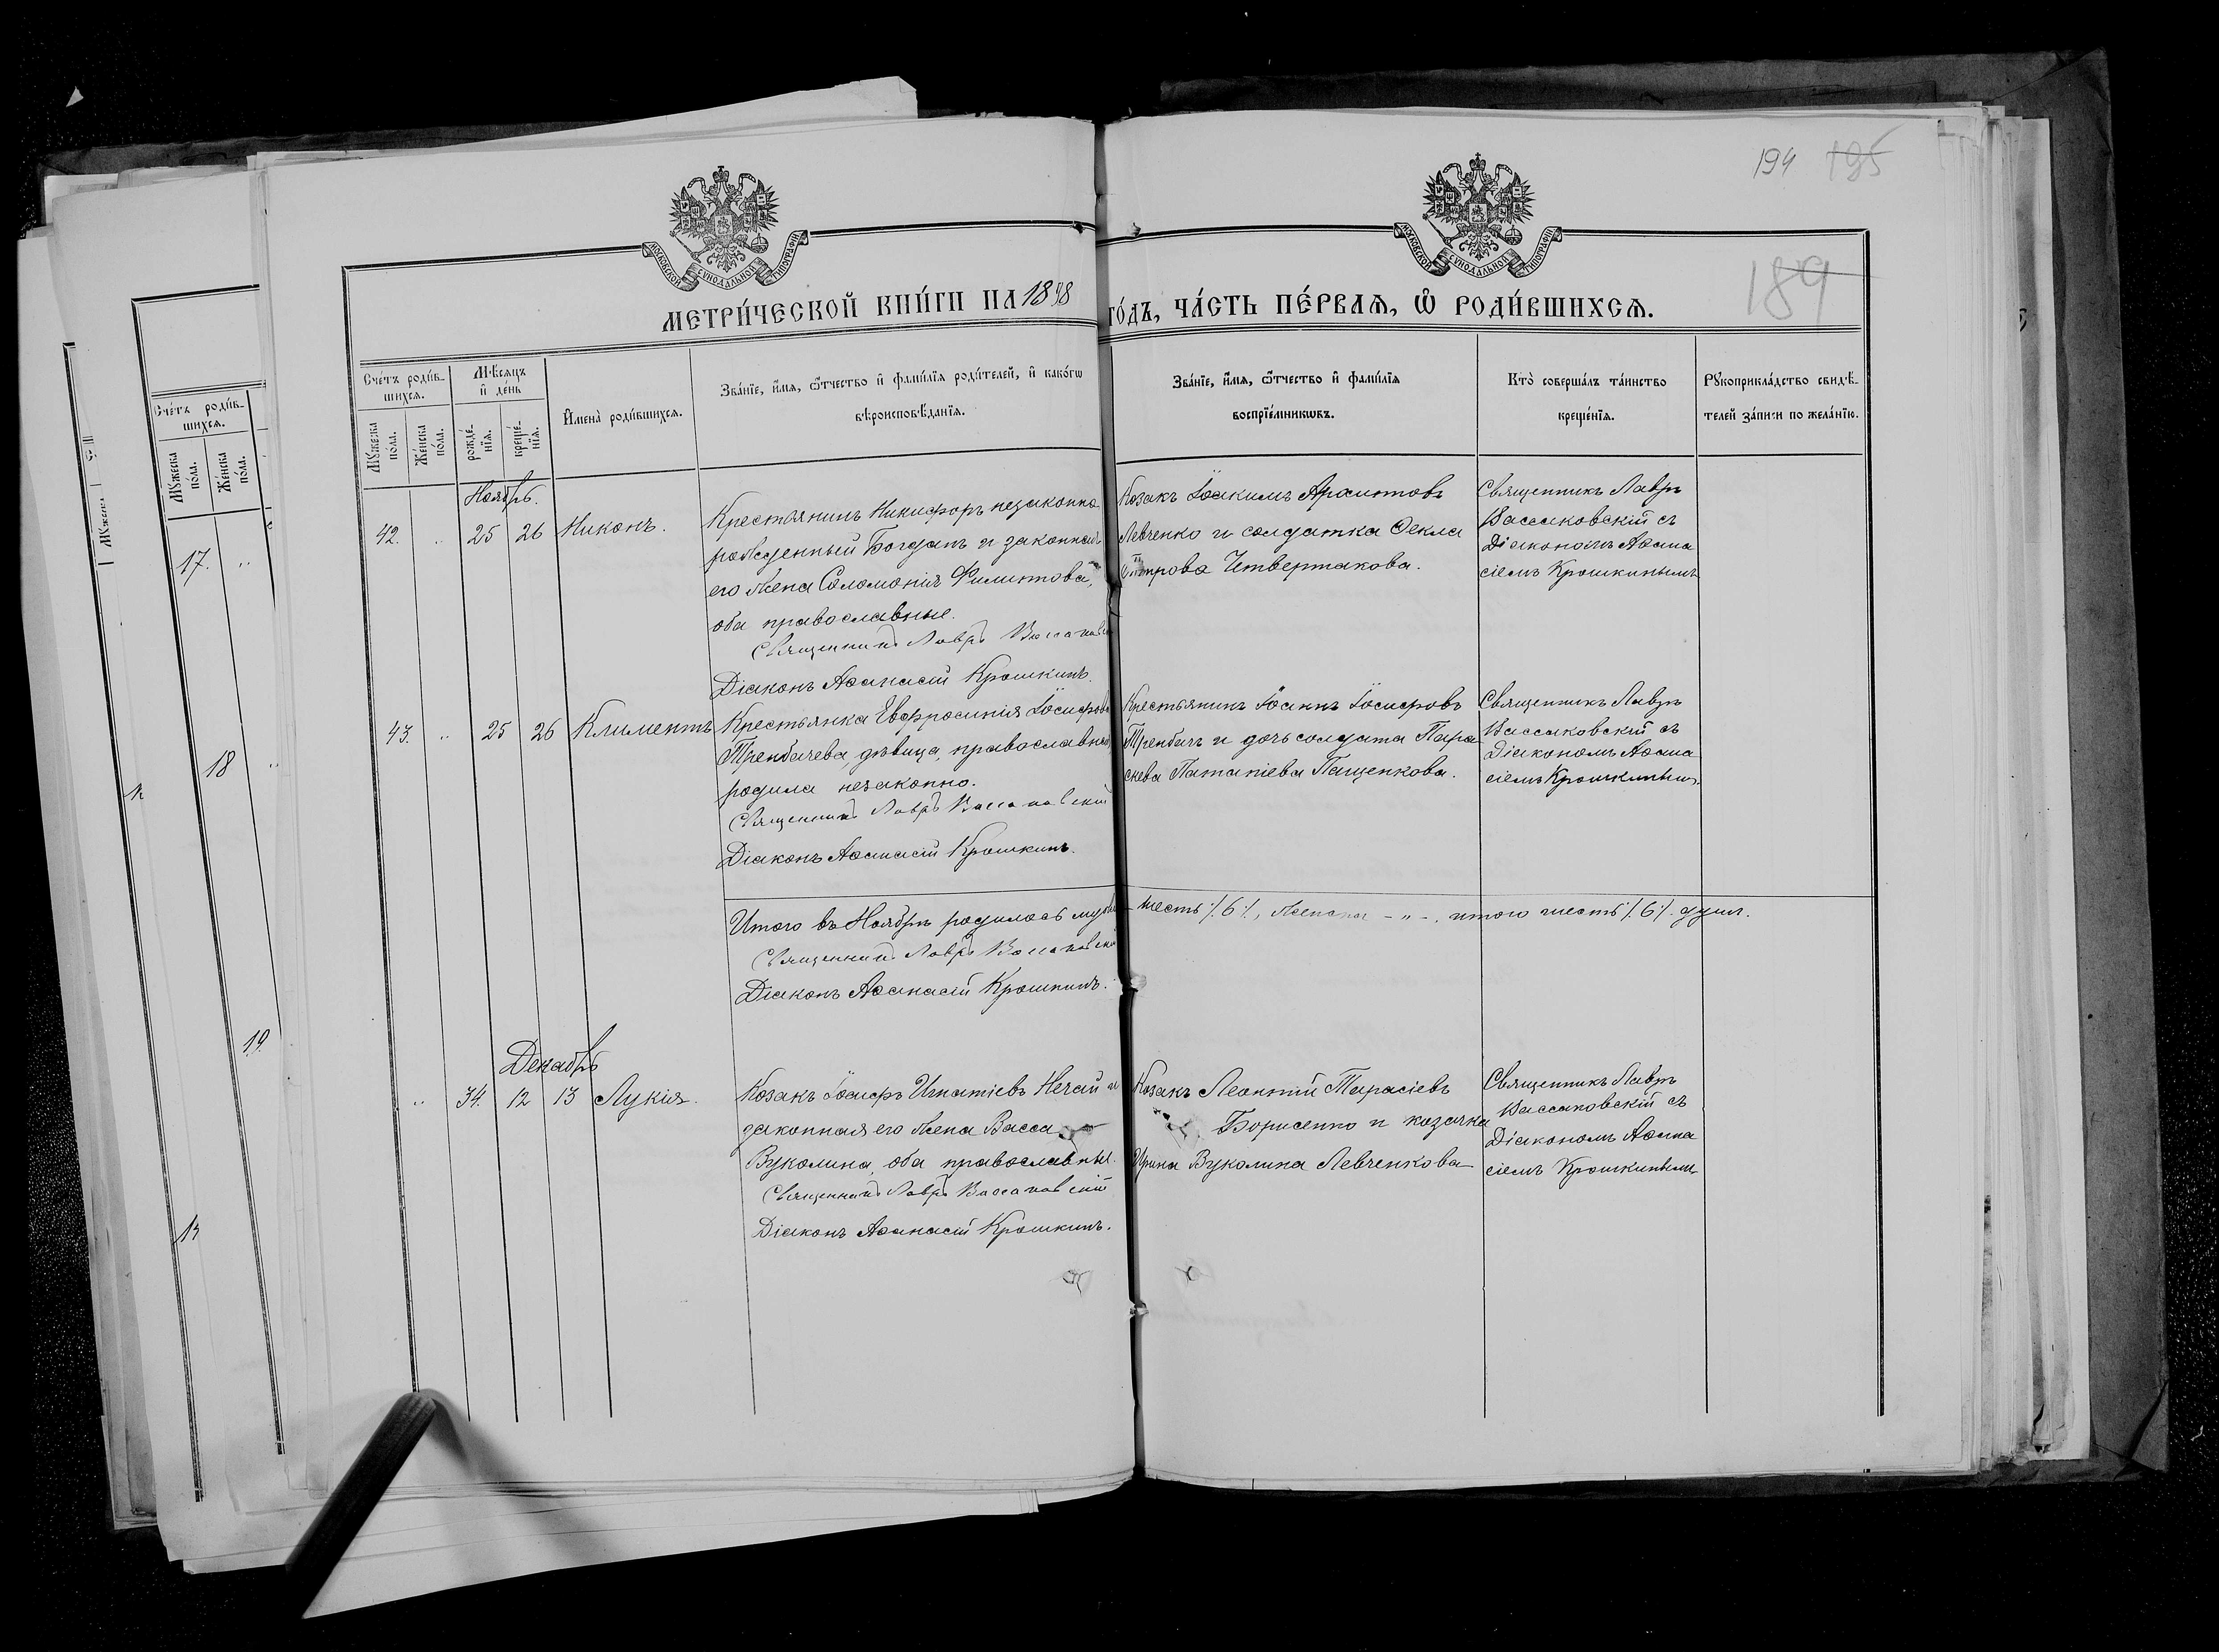 194 195
189
МОСКОВСКОЙ СѴНОДАЛЬНОЙ ТИПОГРАФІИ
МОСКОВСКОЙ СѴНОДАЛЬНОЙ ТИПОГРАФІИ
МЕТРИ́ЧЕСКОЙ КНИ́ГИ НА 1898 ГО́ДЪ, ЧА́СТЬ ПЕ́РВАѦ, Ѽ РОДИ́ВШИХСѦ.
Сче́тъ роди́в-
шихсѧ.
Мꙋжеска
по́ла.
Же́нска
по́ла.
Мѣ́сѧцъ
и҆ де́нь
рожде́-
нїѧ.
креще́-
нїѧ.
И҆мена̀ роди́вшихсѧ.
Зва́нїе, и҆́мѧ, ѻ҆́тчество и҆ фами́лїѧ роди́телей, и҆ како́гѡ
вѣроисповѣ́данїѧ.
Зва́нїе, и҆́мѧ, ѻ҆́тчество и҆ фами́лїѧ
воспрїе́мникѡвъ.
Кто̀ соверша́лъ та́инство
креще́нїѧ.
Рꙋкоприкла́дство свидѣ́-
телей за́писи по жела́нїю.
Ноябрь.
42. " 25 26 Никонъ.
Крестьянинъ Никифоръ незаконно-
рожденный Богданъ и законная
его жена Соломонія Филиппова,
оба православные.
Священникъ Лавръ Вассаковскій
Діаконъ Аѳанасій Крошкинъ.
Козакъ Іоакимъ
Левченко и солдатка Ѳекла
Петрова Четвертакова.
Священникъ Лавръ
Вассаковскій съ
Діакономъ Аѳана
сіемъ Крошкинымъ
43. " 25 26 Климентъ
Крестьянка Евфросинія Іосифова
Трембачева, дѣвица, православная,
родила незаконно.
Священникъ Лавръ Вассаковскій
Діаконъ Аѳанасій Крошкинъ.
Крестьянинъ Іоаннъ Іосифовъ
Трембачъ и дочь солдата Пара
скева Пащенкова.
Священникъ Лавръ
Вассаковскій съ
Діакономъ Аѳана
сіемъ Крошкинымъ.
Итого въ Ноябрѣ родилось муж. шесть /.6/., женска - " -, итого шесть /.6/. душъ.
Священникъ Лавръ Вассаковскій
Діаконъ Аѳанасій Крошкинъ.
Декабрь
" 34. 12 13 Лукія.
Козакъ Іосифъ Игнатіевъ Нечай и
законная его жена Васса
Вуколина, оба православные.
Священникъ Лавръ Вассаковскій
Діаконъ Аѳанасій Крошкинъ.
Козакъ Леонтій Тарасіевъ
Борисенко и козачка
Ирина Вуколина Левченкова
Священникъ Лавръ
Вассаковскій съ
Діакономъ Аѳана
сіемъ Крошкинымъ
Сче́тъ роди́в-
шихсѧ.
Мꙋжеска
по́ла.
Же́нска
по́ла.
17. "
18 "
19.